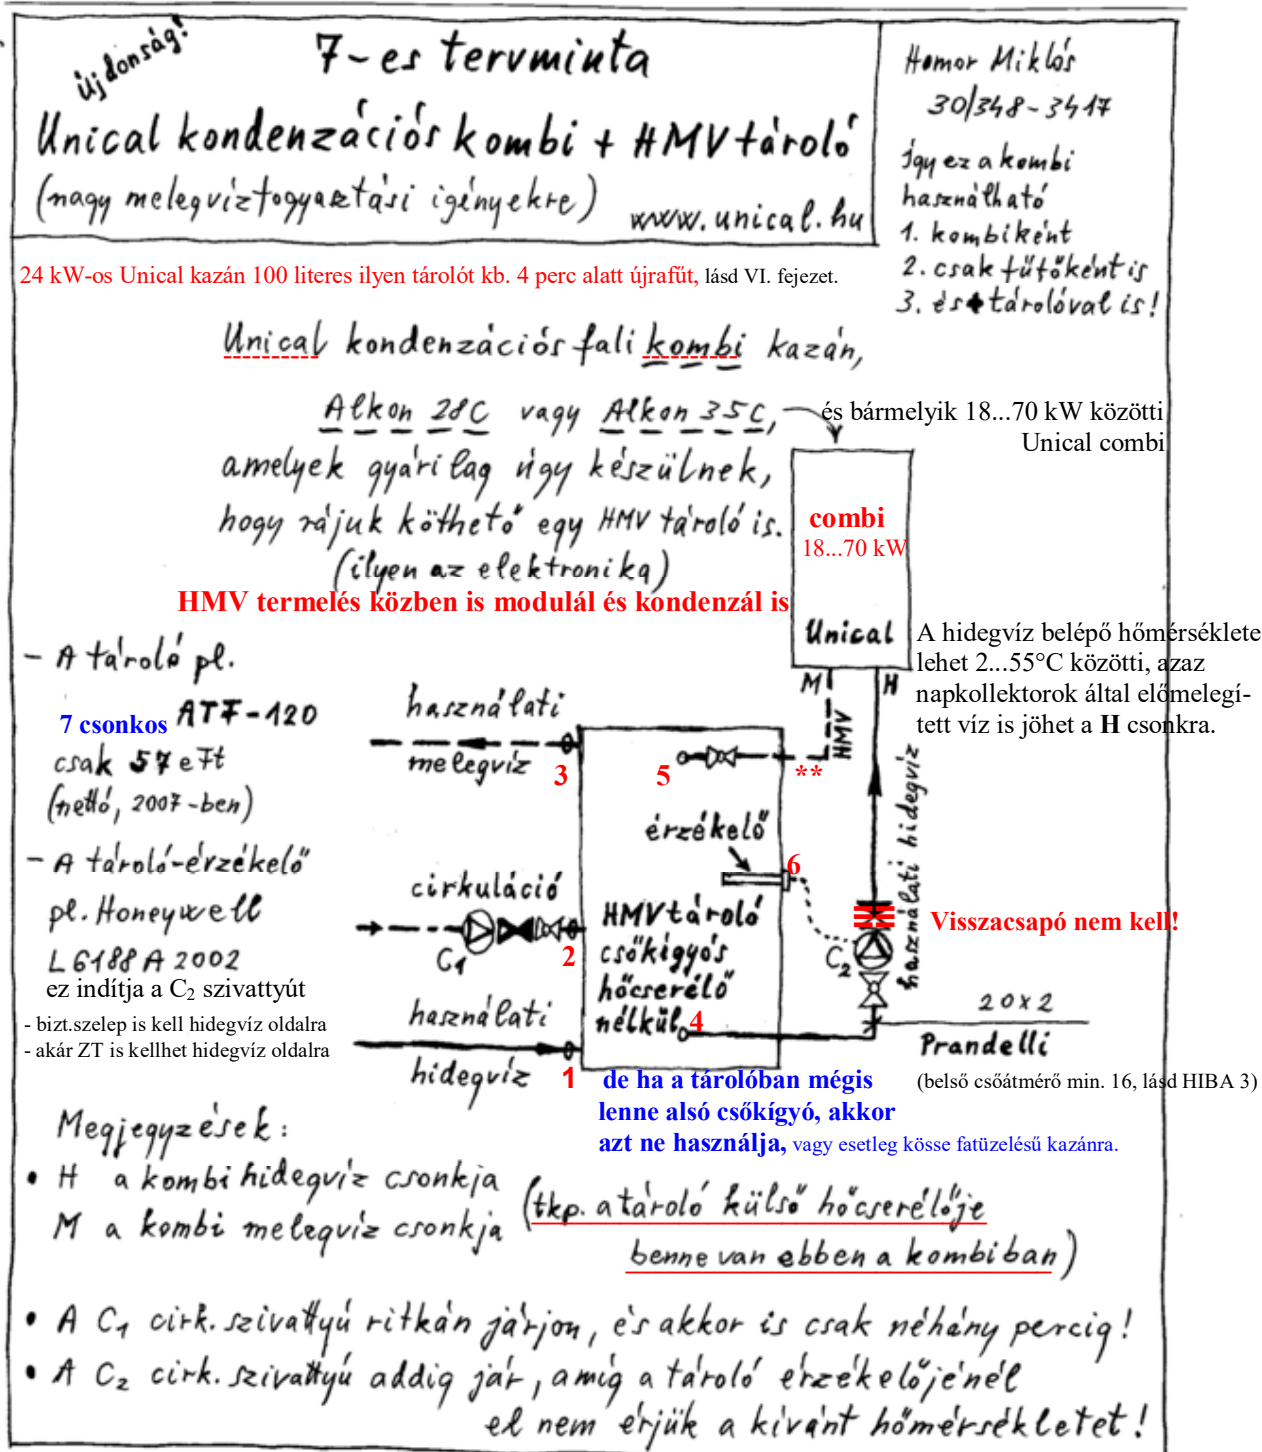 újdonság!
7-es tervminta
Unical kondenzációs kombi + HMV tároló
(nagy melegvíztogyasztási igényekre)
www.unical.hu
Homor Miklós
30/348-3417
Így ez a kombi
használható
1. kombiként
2. csak fűtőként is
3. és tárolóval is!
24 kW-os Unical kazán 100 literes ilyen tárolót kb. 4 perc alatt újrafűt, lásd VI. fejezet.
Unical kondenzációs fali kombi kazán,
Alkon 28C vagy Alkon 35C,
és bármelyik 18...70 kW közötti
Unical combi
amelyek gyárilag úgy készülnek,
hogy rájuk köthető egy HMV tároló is.
(ilyen az elektronika)
HMV termelés közben is modulál és kondenzál is
combi
18...70 kW
Unical
M H
HMV
A hidegvíz belépő hőmérséklete
lehet 2...55°C közötti, azaz
napkollektorok által előmelegí-
tett víz is jöhet a H csonkra.
- A tároló pl.
7 csonkos ATF-120
csak 57 eFt
(nettó, 2007-ben)
- A tároló-érzékelő
pl. Honeywell
L6188A2002
ez indítja a C2 szivattyút
- bizt.szelep is kell hidegvíz oldalra
- akár ZT is kellhet hidegvíz oldalra
használati
melegvíz
3
5
**
érzékelő
6
cirkuláció
C1
2
HMV tároló
csőkígyós
hőcserélő
nélkül
4
használati
hidegvíz
1
C2
használati hidegvíz
Visszacsapó nem kell!
20x2
Prandelli
(belső csőátmérő min. 16, lásd HIBA 3)
de ha a tárolóban mégis
lenne alsó csőkígyó, akkor
azt ne használja, vagy esetleg kösse fatüzelésű kazánra.
Megjegyzések:
• H a kombi hidegvíz csonkja
M a kombi melegvíz csonkja
(tkp. a tároló külső hőcserélője
benne van ebben a kombiban)
• A C1 cirk. szivattyú ritkán járjon, és akkor is csak néhány percig!
• A C2 cirk. szivattyú addig jár, amíg a tároló érzékelőjénél
el nem érjük a kívánt hőmérsékletet!